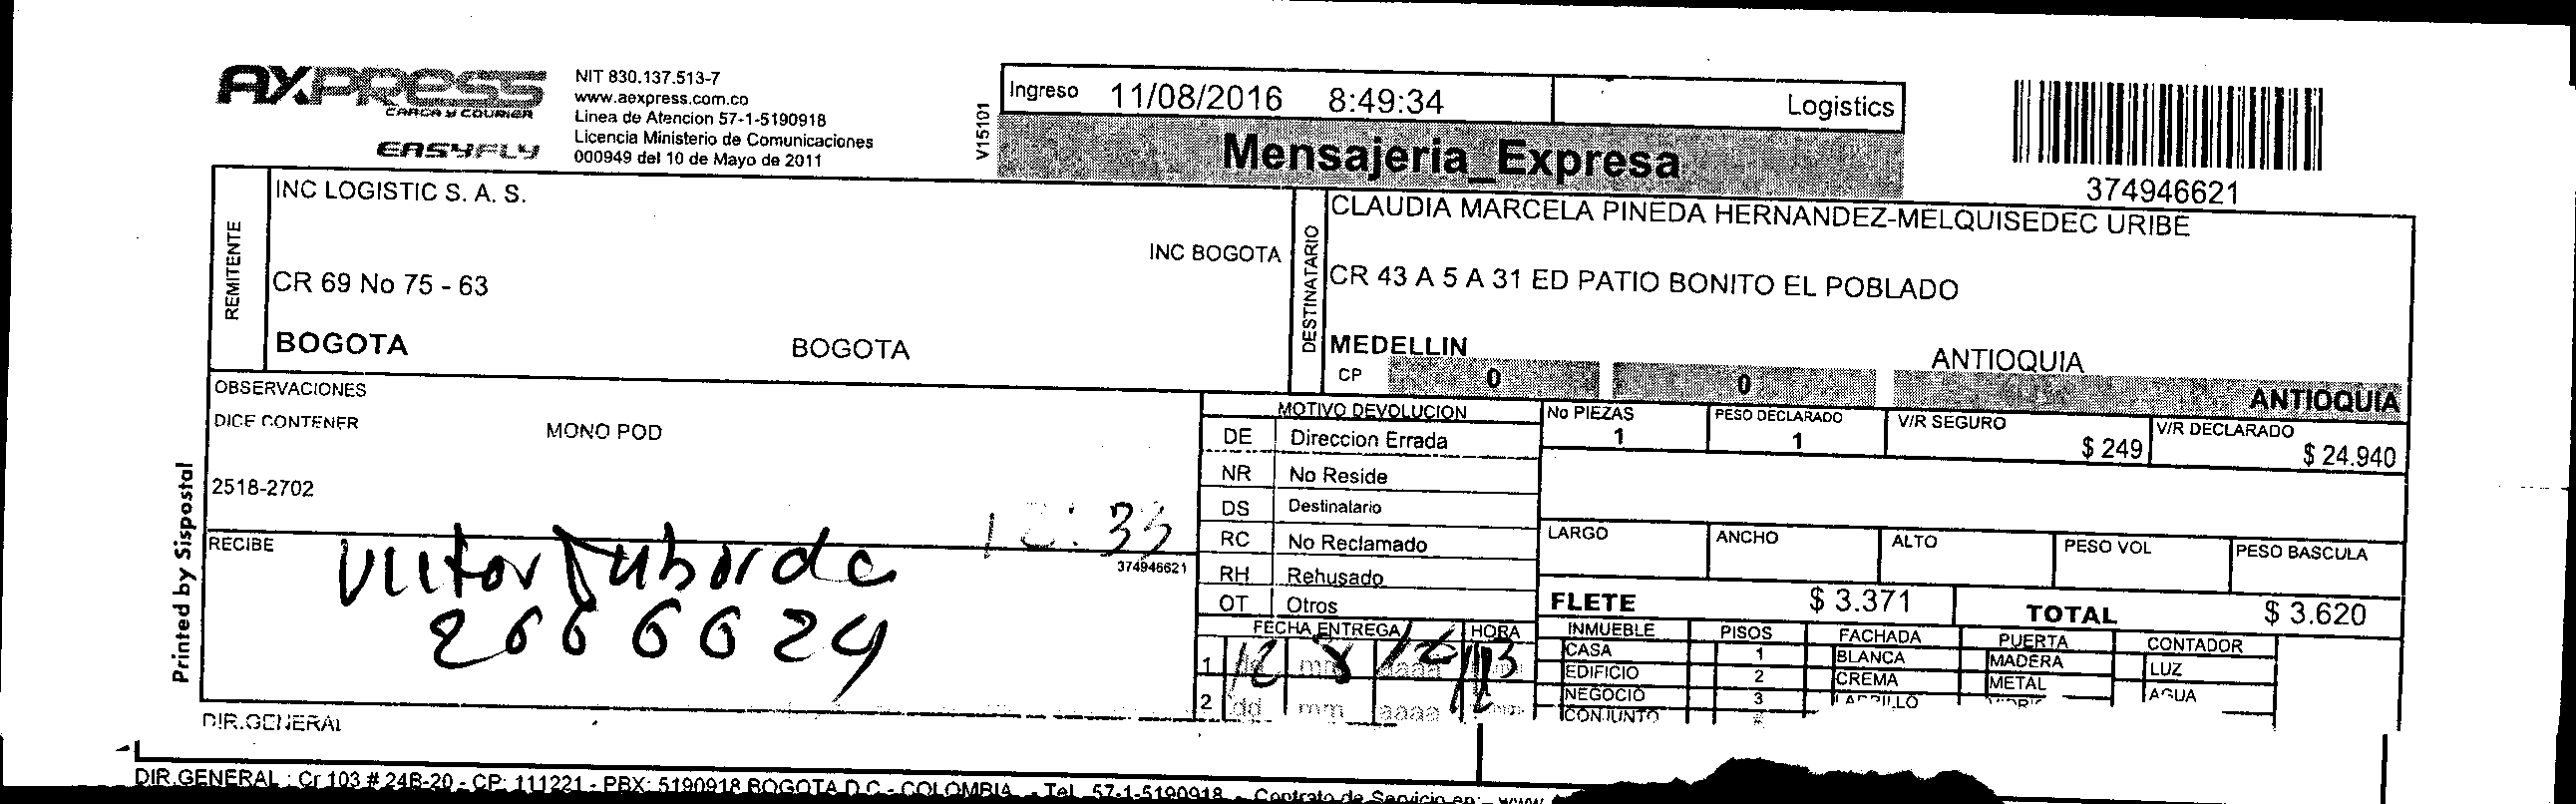 AXPRESS
CARGA Y COURIER
EASYFLY
NIT 830.137.513-7
www.aexpress.com.co
Linea de Atencion 57-1-5190918
Licencia Ministerio de Comunicaciones
000949 del 10 de Mayo de 2011
V15101
Ingreso 11/08/2016 8:49:34 Logistics
Mensajeria_Expresa
374946621
REMITENTE
INC LOGISTIC S. A. S.
INC BOGOTA
CR 69 No 75 - 63
BOGOTA BOGOTA
DESTINATARIO
CLAUDIA MARCELA PINEDA HERNANDEZ-MELQUISEDEC URIBE
CR 43 A 5 A 31 ED PATIO BONITO EL POBLADO
MEDELLIN ANTIOQUIA
CP 0 0 ANTIOQUIA
OBSERVACIONES
DICE CONTENER MONO POD
2518-2702
12:33
RECIBE
374946621
2666624
Printed by Sispostal
MOTIVO DEVOLUCION
DE Direccion Errada
NR No Reside
DS Destinatario
RC No Reclamado
RH Rehusado
OT Otros
FECHA ENTREGA HORA
1 12 mm 8 aaaa
2 dd mm aaaa
No PIEZAS PESO DECLARADO V/R SEGURO V/R DECLARADO
1 1 $ 249 $ 24.940
LARGO ANCHO ALTO PESO VOL PESO BASCULA
FLETE $ 3.371 TOTAL $ 3.620
INMUEBLE PISOS FACHADA PUERTA CONTADOR
CASA 1 BLANCA MADERA LUZ
EDIFICIO 2 CREMA METAL AGUA
NEGOCIO 3 LADRILLO
CONJUNTO
DIR.GENERAL
DIR.GENERAL : Cr 103 # 24B-20 - CP: 111221 - PBX: 5190918 BOGOTA D.C - COLOMBIA - Tel. 57-1-5190918 - Contrato de Servicio en: www